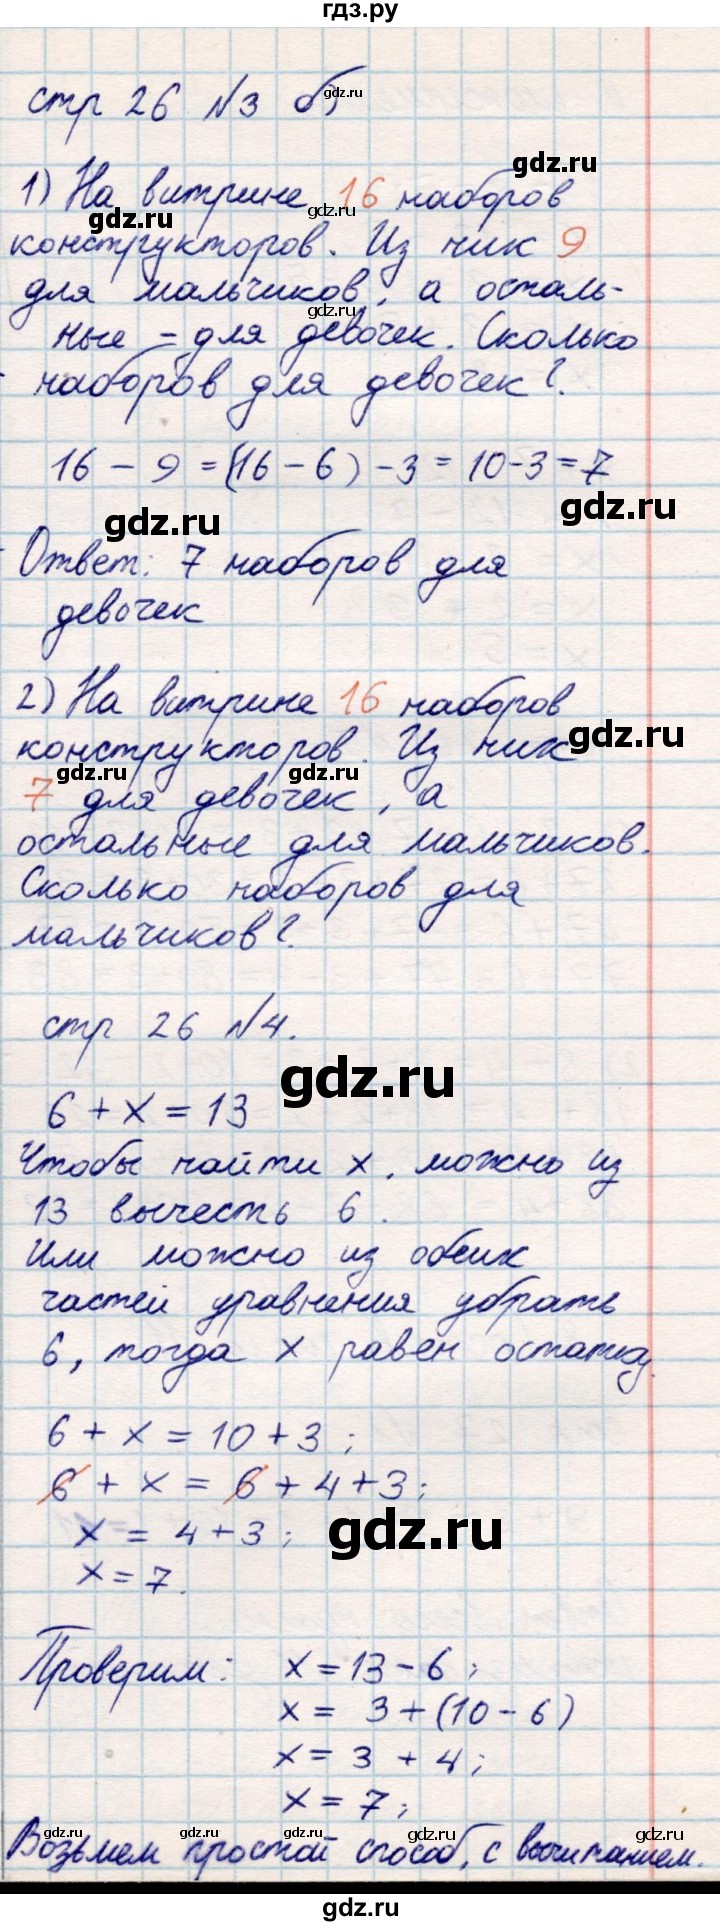 гдз.ру
стр 26 №3 б)
1) На витрине 16 наборов
конструкторов. Из них 9
для мальчиков, а осталь-
ные – для девочек. Сколько
наборов для девочек?
16 - 9 = (16 - 6) - 3 = 10 - 3 = 7
Ответ: 7 наборов для
девочек
2) На витрине 16 наборов
конструкторов. Из них
7 для девочек, а
остальные для мальчиков.
Сколько наборов для
мальчиков?
стр 26 №4.
6 + x = 13
Чтобы найти x, можно из
13 вычесть 6.
Или можно из обеих
частей уравнения убрать
6, тогда x равен остатку.
6 + x = 10 + 3;
6 + x = 6 + 4 + 3;
x = 4 + 3;
x = 7.
Проверим: x = 13 - 6;
x = 3 + (10 - 6)
x = 3 + 4;
x = 7;
Возьмем простой способ, с вычитанием.
gdz.ru